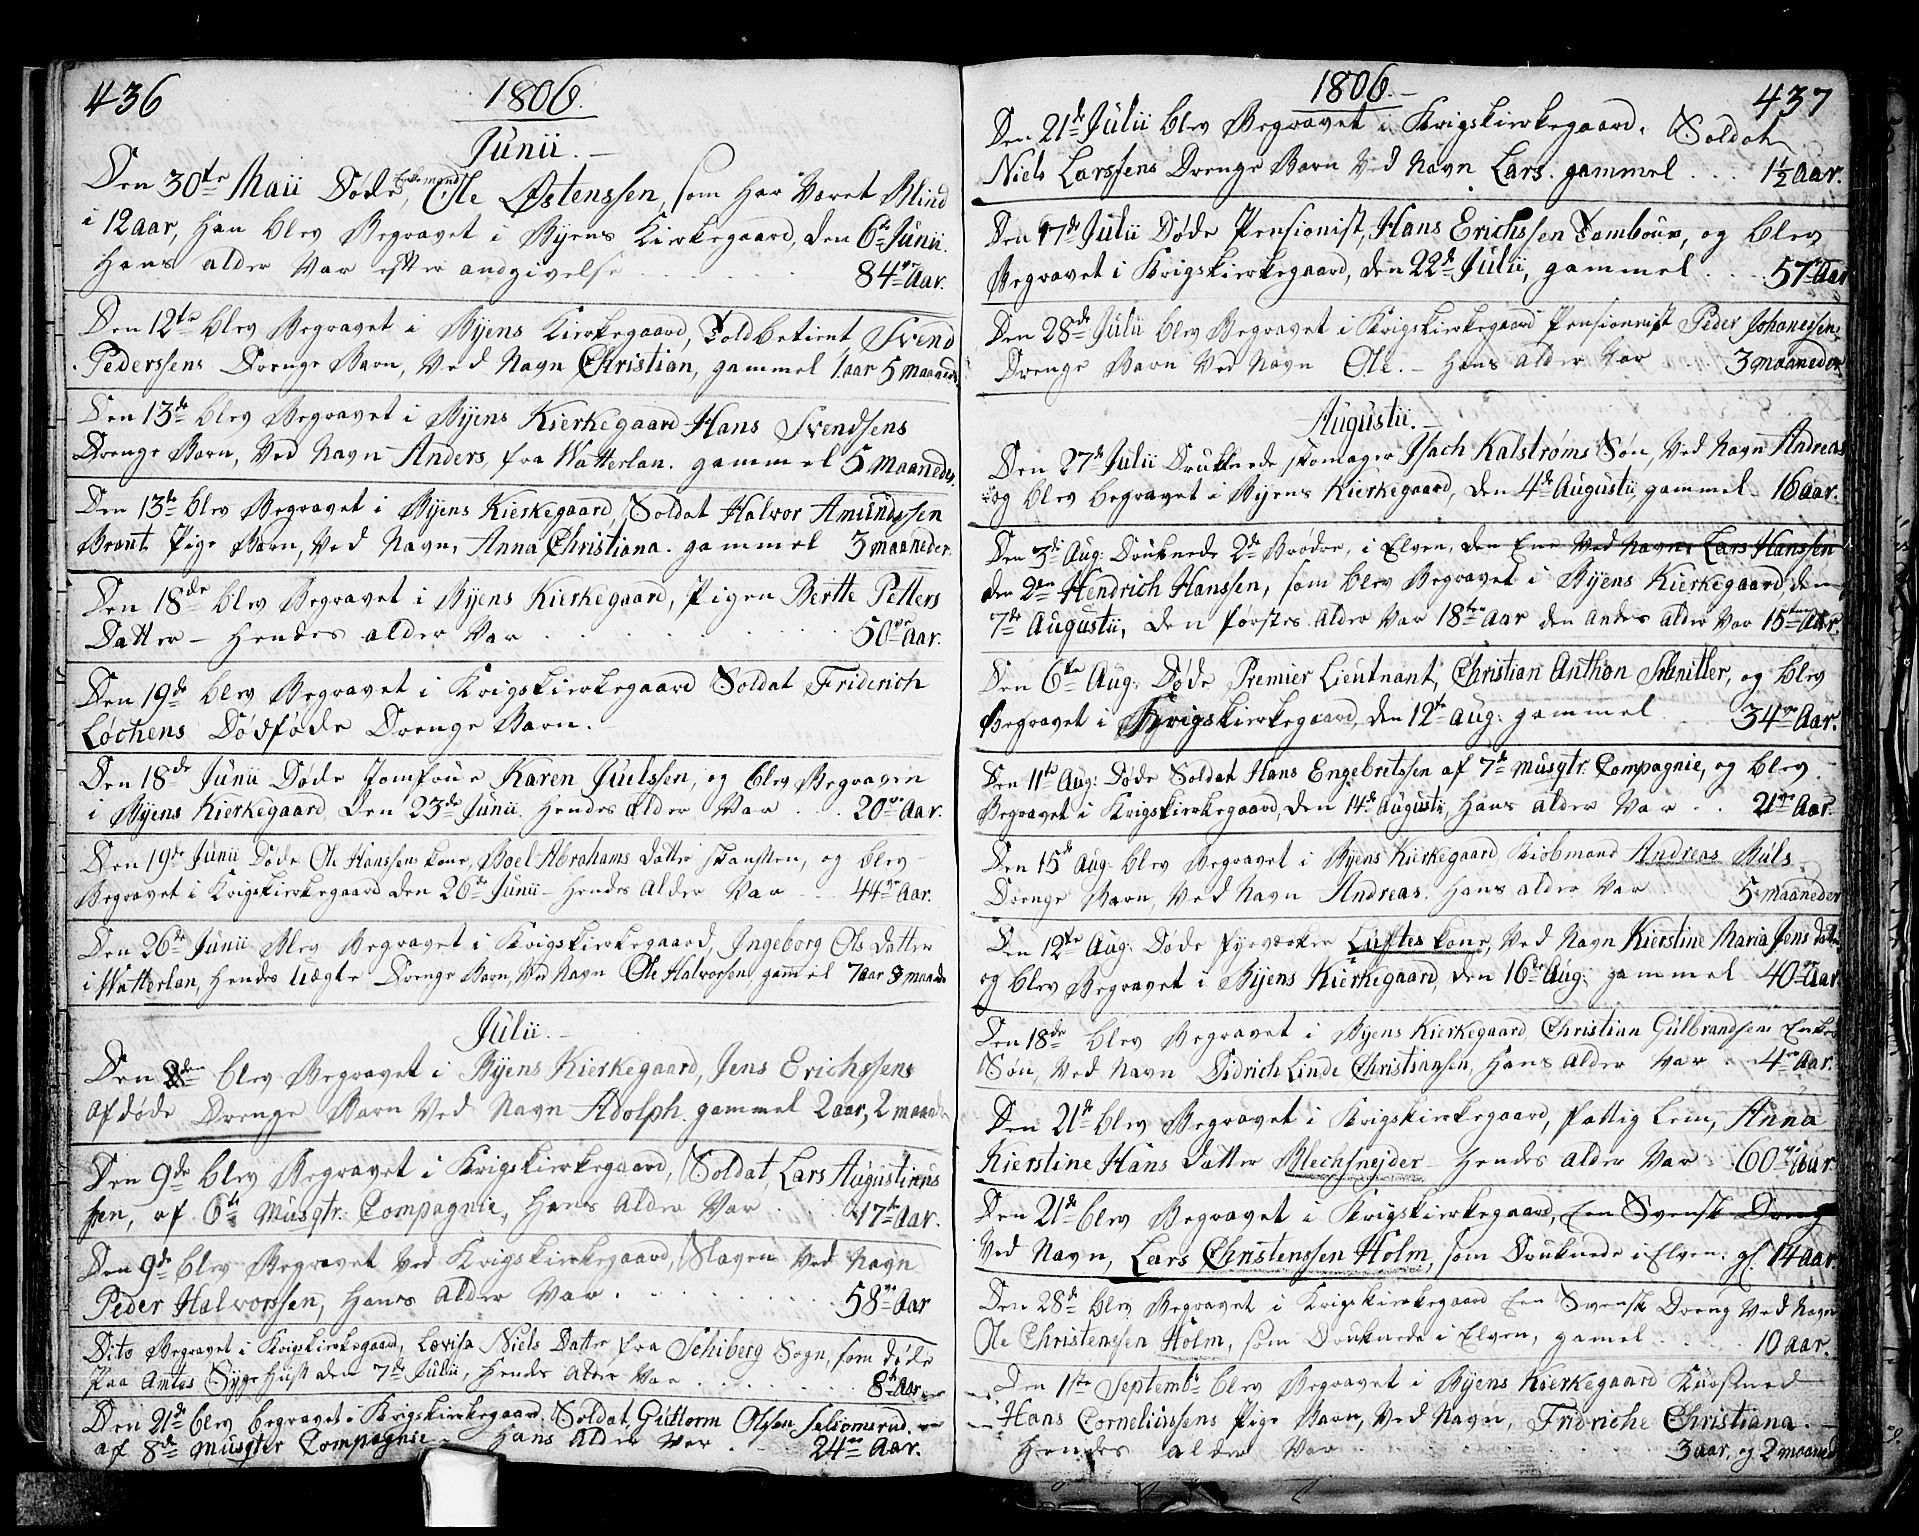 436
1806.
Junii.
Den 30te Maii Døde, Enkemand Ole Østenssen, som har Været Blind
i 12 aar, Han blev Begravet i Byens Kierkegaard, den 6te Junii.
Hans alder Var efter andgivelse 84ve Aar.
Den 12te blev Begravet i Byens Kierkegaard, Toldbetient Svend
Pederssens Drenge Barn, Ved Navn Christian, gammel 1 aar 5 maaneder
Den 13de blev Begravet i Byens Kierkegaard Hans Svendsens
Drenge Barn, Ved Navn Anders, fra Watterlan. gammel 5 Maaneder.
Den 13de blev Begravet i Byens Kierkegaard, Soldat Halvor Amundssen
Bront. Pige Barn, Ved Navn, Anna Christiana. gammel 3 maaneder.
Den 18de blev Begravet i Byens Kierkegaard, Pigen Berthe Petters
Datter - Hendes alder Var 50ve Aar.
Den 19de blev Begravet i Krigskierkegaard Soldat Friderich
Løchens Dødføde Drenge Barn.
Den 18de Junii Døde Jomfrue Karen Juulssen, og blev Begraven
i Byens Kierkegaard, Den 23de Junii. Hendes alder Var 20ve Aar.
Den 19de Junii Døde Ole Hanssens kone, Boel Abrahams datter skansten, og blev
Begravet i Krigskierkegaard den 26de Junii - Hendes alder Var 44ve Aar.
Den 26de Junii Blev Begravet i Krigskierkegaard, Ingeborg Ols datter
i Watterlan, Hendes Uægte Drenge Barn, Ved Navn Ole Halvorssen, gammel 7 aar 8 maaneder
Julii.
Den 2den blev Begravet i Byens Kierkegaard, Jens Erichssens
afdøde Drenge Barn Ved Navn Adolph. gammel 2 aar, 2 maaneder
Den 9de blev Begravet i Krigskierkegaard, Soldat Lars Augustinus
sen, af 6te Musqtr. Compagnie, Hans alder Var 47de Aar.
Den 9de blev Begravet Ved Krigskierkegaard, Slaven Ved Navn
Peder Halvorssen, Hans alder Var 58ve Aar
Dito Begravet i Krigskierkegaard, Lovisa Niels Datter fra Schiberg Sogn, som døde
Paa Amtes Syge Hust den 7de Julii, Hendes alder Var 8te Aar.
Den 21de blev begravet i Krigskierkegaard. Soldat, Guttorm Olssen Selliomsrud.
af 8de Musqter Compagnie - Hans Alder Var 24ve Aar.
1806.
437
Den 21de Julii blev Begravet i Krigskierkegaard, Soldat
Niels Larssens Drenge Barn Ved Navn Lars. gammel 1½ Aar.
Den 17de Julii Døde Pensionist, Hans Erichssen Tambour, og blev
Begravet i Krigskierkegaard, den 22de Julii, gammel 57 Aar
Den 28de Julii blev Begravet i Krigskierkegaard Pensionnist Peder Johanessens
Drenge Barn Ved Navn Ole. - Hans alder Var 3 maaneder
Augustii.
Den 27de Julii Druknede skomager Isach Kalstrøms Søn, Ved Navn Andreas
og blev begravet i Byens Kierkegaard, den 4de Augustii, gammel 16 aar.
Den 3de Aug: Druknede 2de Brødre, i Elven, den Ene Ved Navn Lars Hanssen
den 2den Hendrich Hanssen, som blev Begravet i Byens Kierkegaard, den
7de Augustii, den førstes Alder Var 18ten Aar den andes alder Var 15ten Aar.
Den 6te Aug: Døde Premier Lieutnant, Christian Anthon Schnitler, og blev
Begravet i Krigskierkegaard, den 12te aug: gammel 34ve Aar.
Den 11te Aug: Døde Soldat Hans Engebretssen af 7de musqtr. Compagnie, og blev
Begravet i Krigskierkegaard, den 14de Augustii, Hans alder Var 21ve Aar.
Den 15de Aug: blev Begravet i Byens Kierkegaard Kiobmand Andreas Buls
Drenge Barn, Ved Navn Andreas. Hans alder Var 5 maaneder
Den 12te Aug: Døde fyrværker Luftes kone, Ved Navn Kierstine Maria Jens datter
og blev Begravet i Byens Kierkegaard, den 16de Aug: gammel 40ve Aar.
Den 18de blev Begravet i Byens Kierkegaard Christian Gulbrandsens Enkes
Søn, Ved Navn Didrich Linde Christianssen, Hans alder Var 4ve Aar.
Den 21de blev Begravet i Krigskierkegaard, Fattig Lem, Anna
Kierstine Hans datter Blechsnejder - Hendes alder Var 60ve Aar.
Den 21de blev Begravet i Krigskierkegaard, Een Svensk Dreng
Ved Navn, Lars Christenssen Holm, som Druknede i Elven. gl. 14 aar.
Den 28de blev Begravet i Krigskierkegaard Een Svensk Dreng Ved Navn
Ole Christenssen Holm, som Druknede i Elven, gamel 10 aar.
Den 1ste Septembr blev Begravet i Byens Kierkegaard Kudsmed
Hans Corneliussens Pige Barn, Ved Navn, Fridriche Christiana.
Hendes alder Var 3 aar, og 2 maaneder